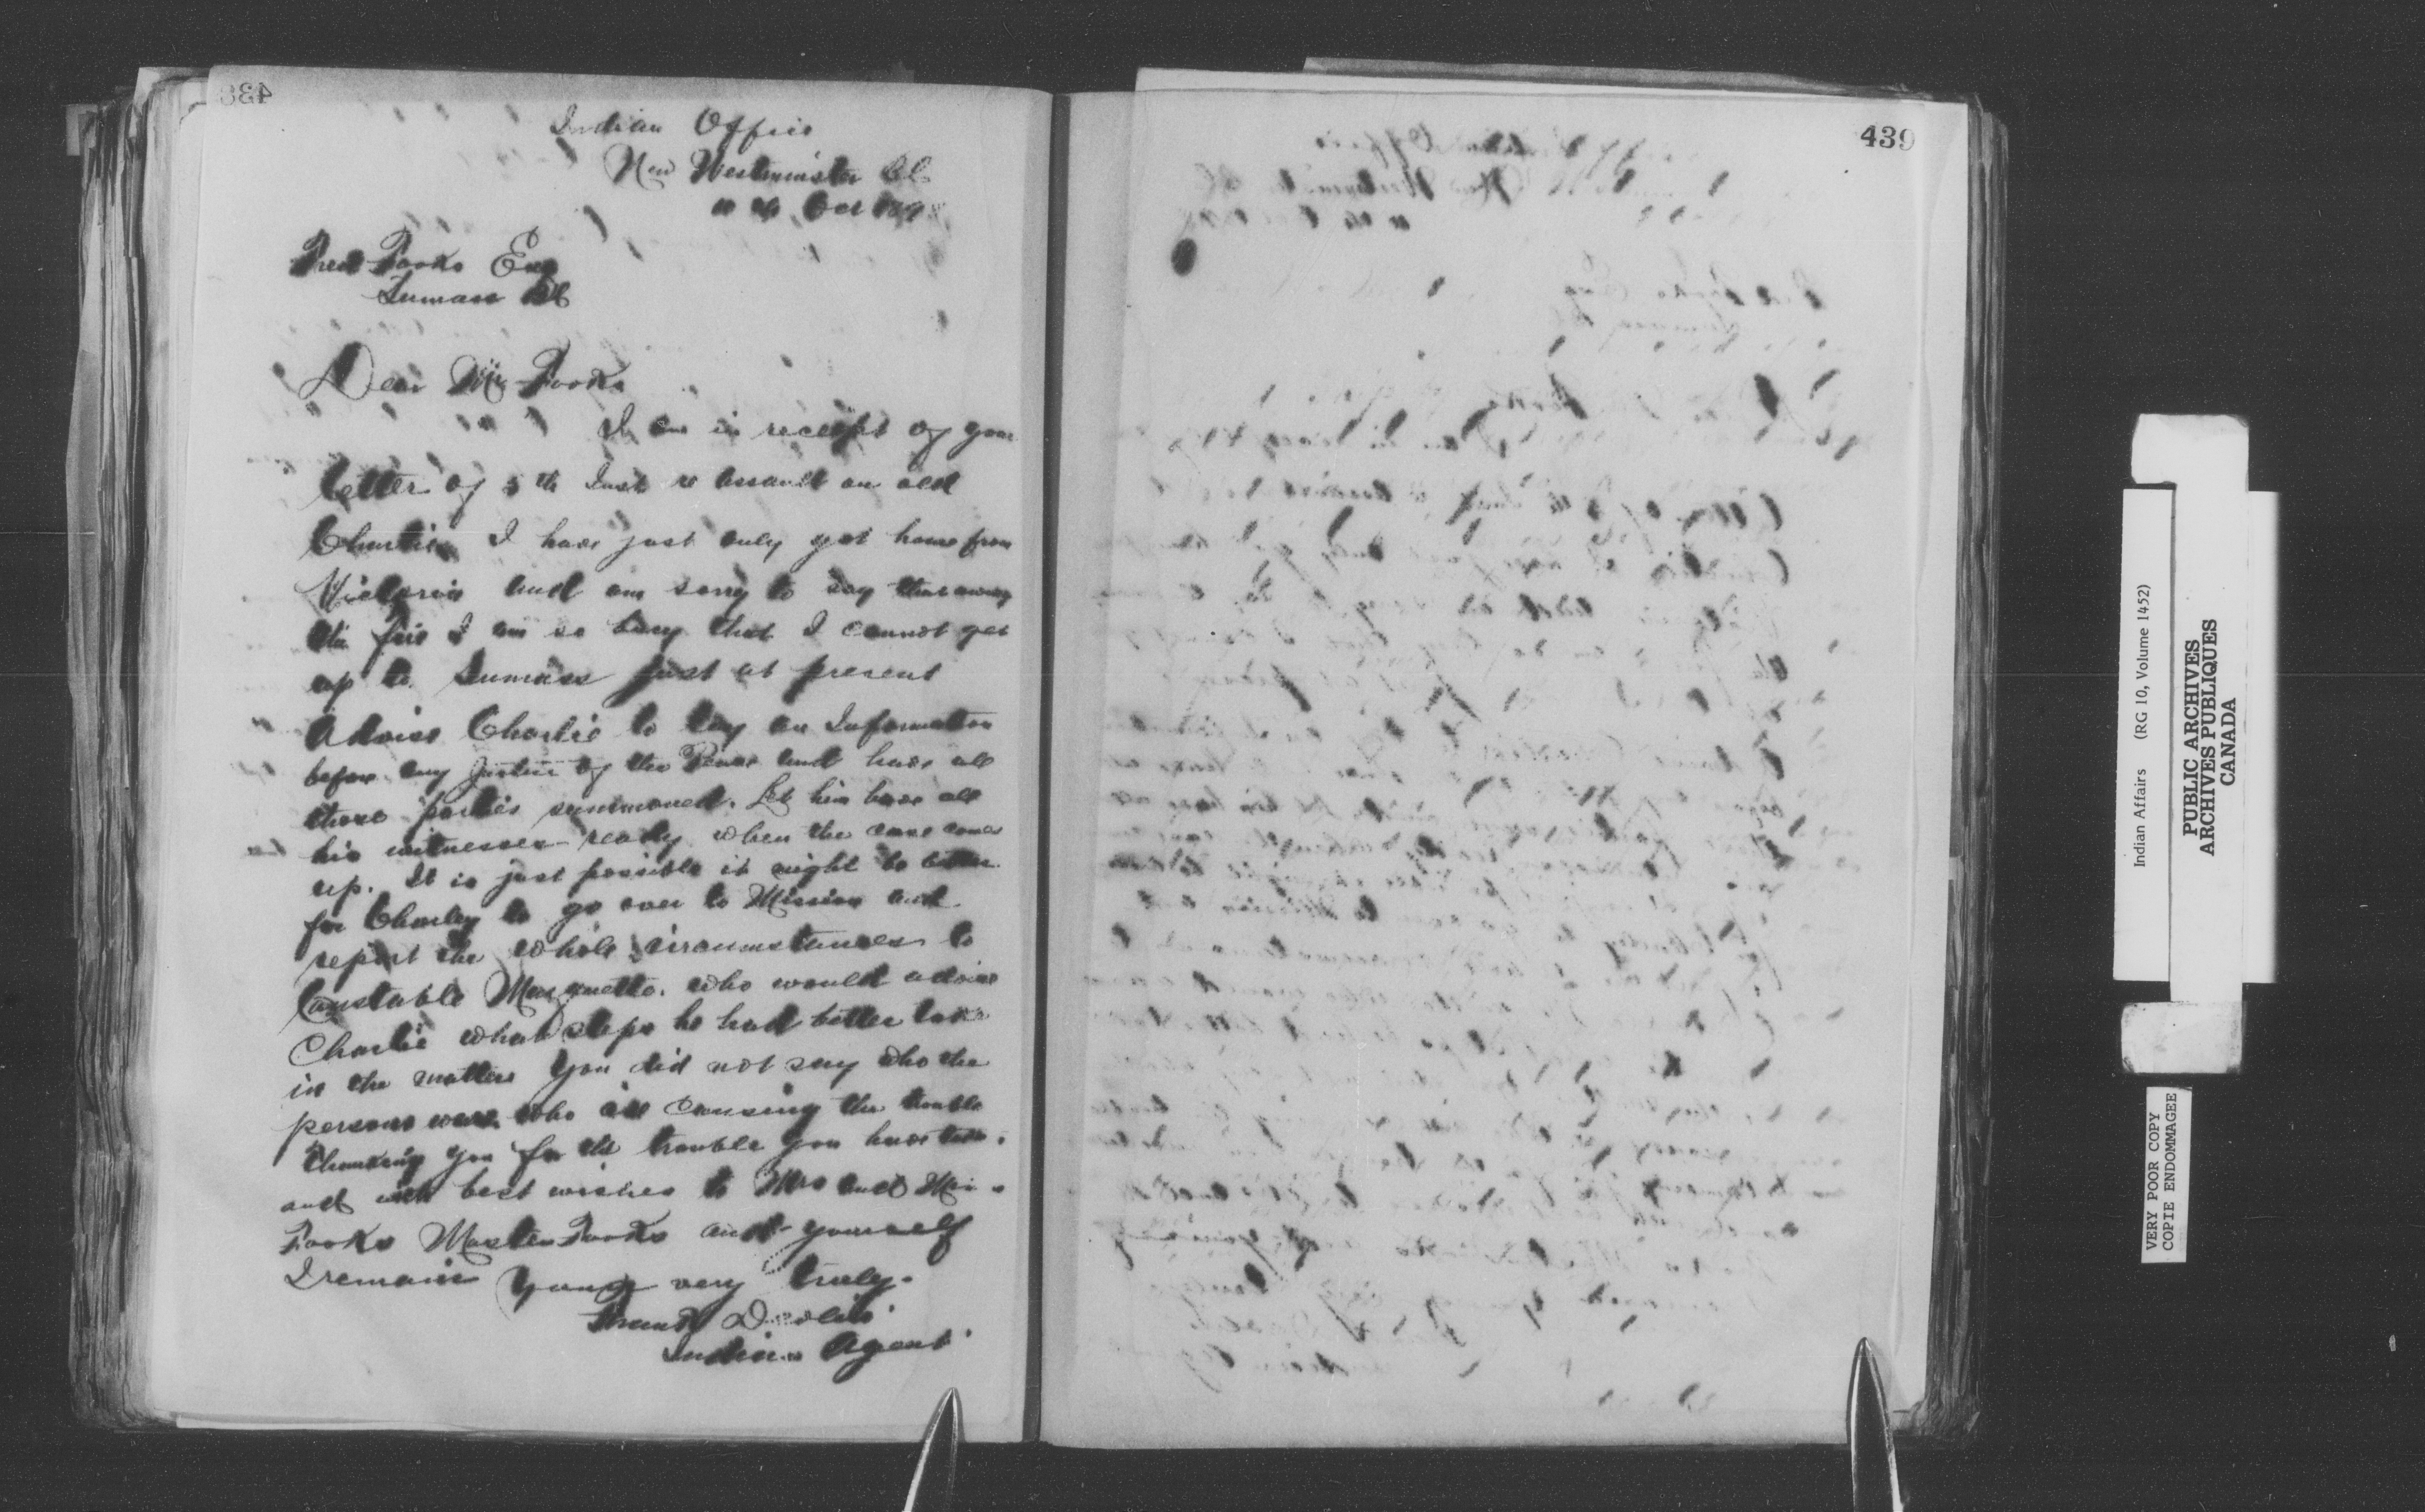 438
Indian Office
New Westminster BC
11th Oct 189
Fred Fooks Esq
Sumass BC
Dear Mr Fooks
I am in receipt of your
letter of 5th Inst re assault on old
Charlie. I have just only got home from
Victoria and am sorry to say that owing
to I am so busy that I cannot get
up to Sumass just at present
Advise Charlie to lay an Information
before any Justice of the Peace and have all
those parties summoned. Let him have all
his witnesses ready when the case comes
up. It is just possible it might be better
for Charley to go over to Mission and
report the whole circumstances to
Constable Marquette. who would advise
Charlie what steps he had better take
in the matter You did not say who the
persons were who are causing the trouble
Thanking you for the trouble you have taken.
and with best wishes to Mrs and
Fooks Master Fooks and yourself
I remain Yours very truly.
Frank Devlin
Indian Agent
439
Indian Affairs (RG 10, Volume 1452)
PUBLIC ARCHIVES
ARCHIVES PUBLIQUES
CANADA
VERY POOR COPY
COPIE ENDOMMAGEE